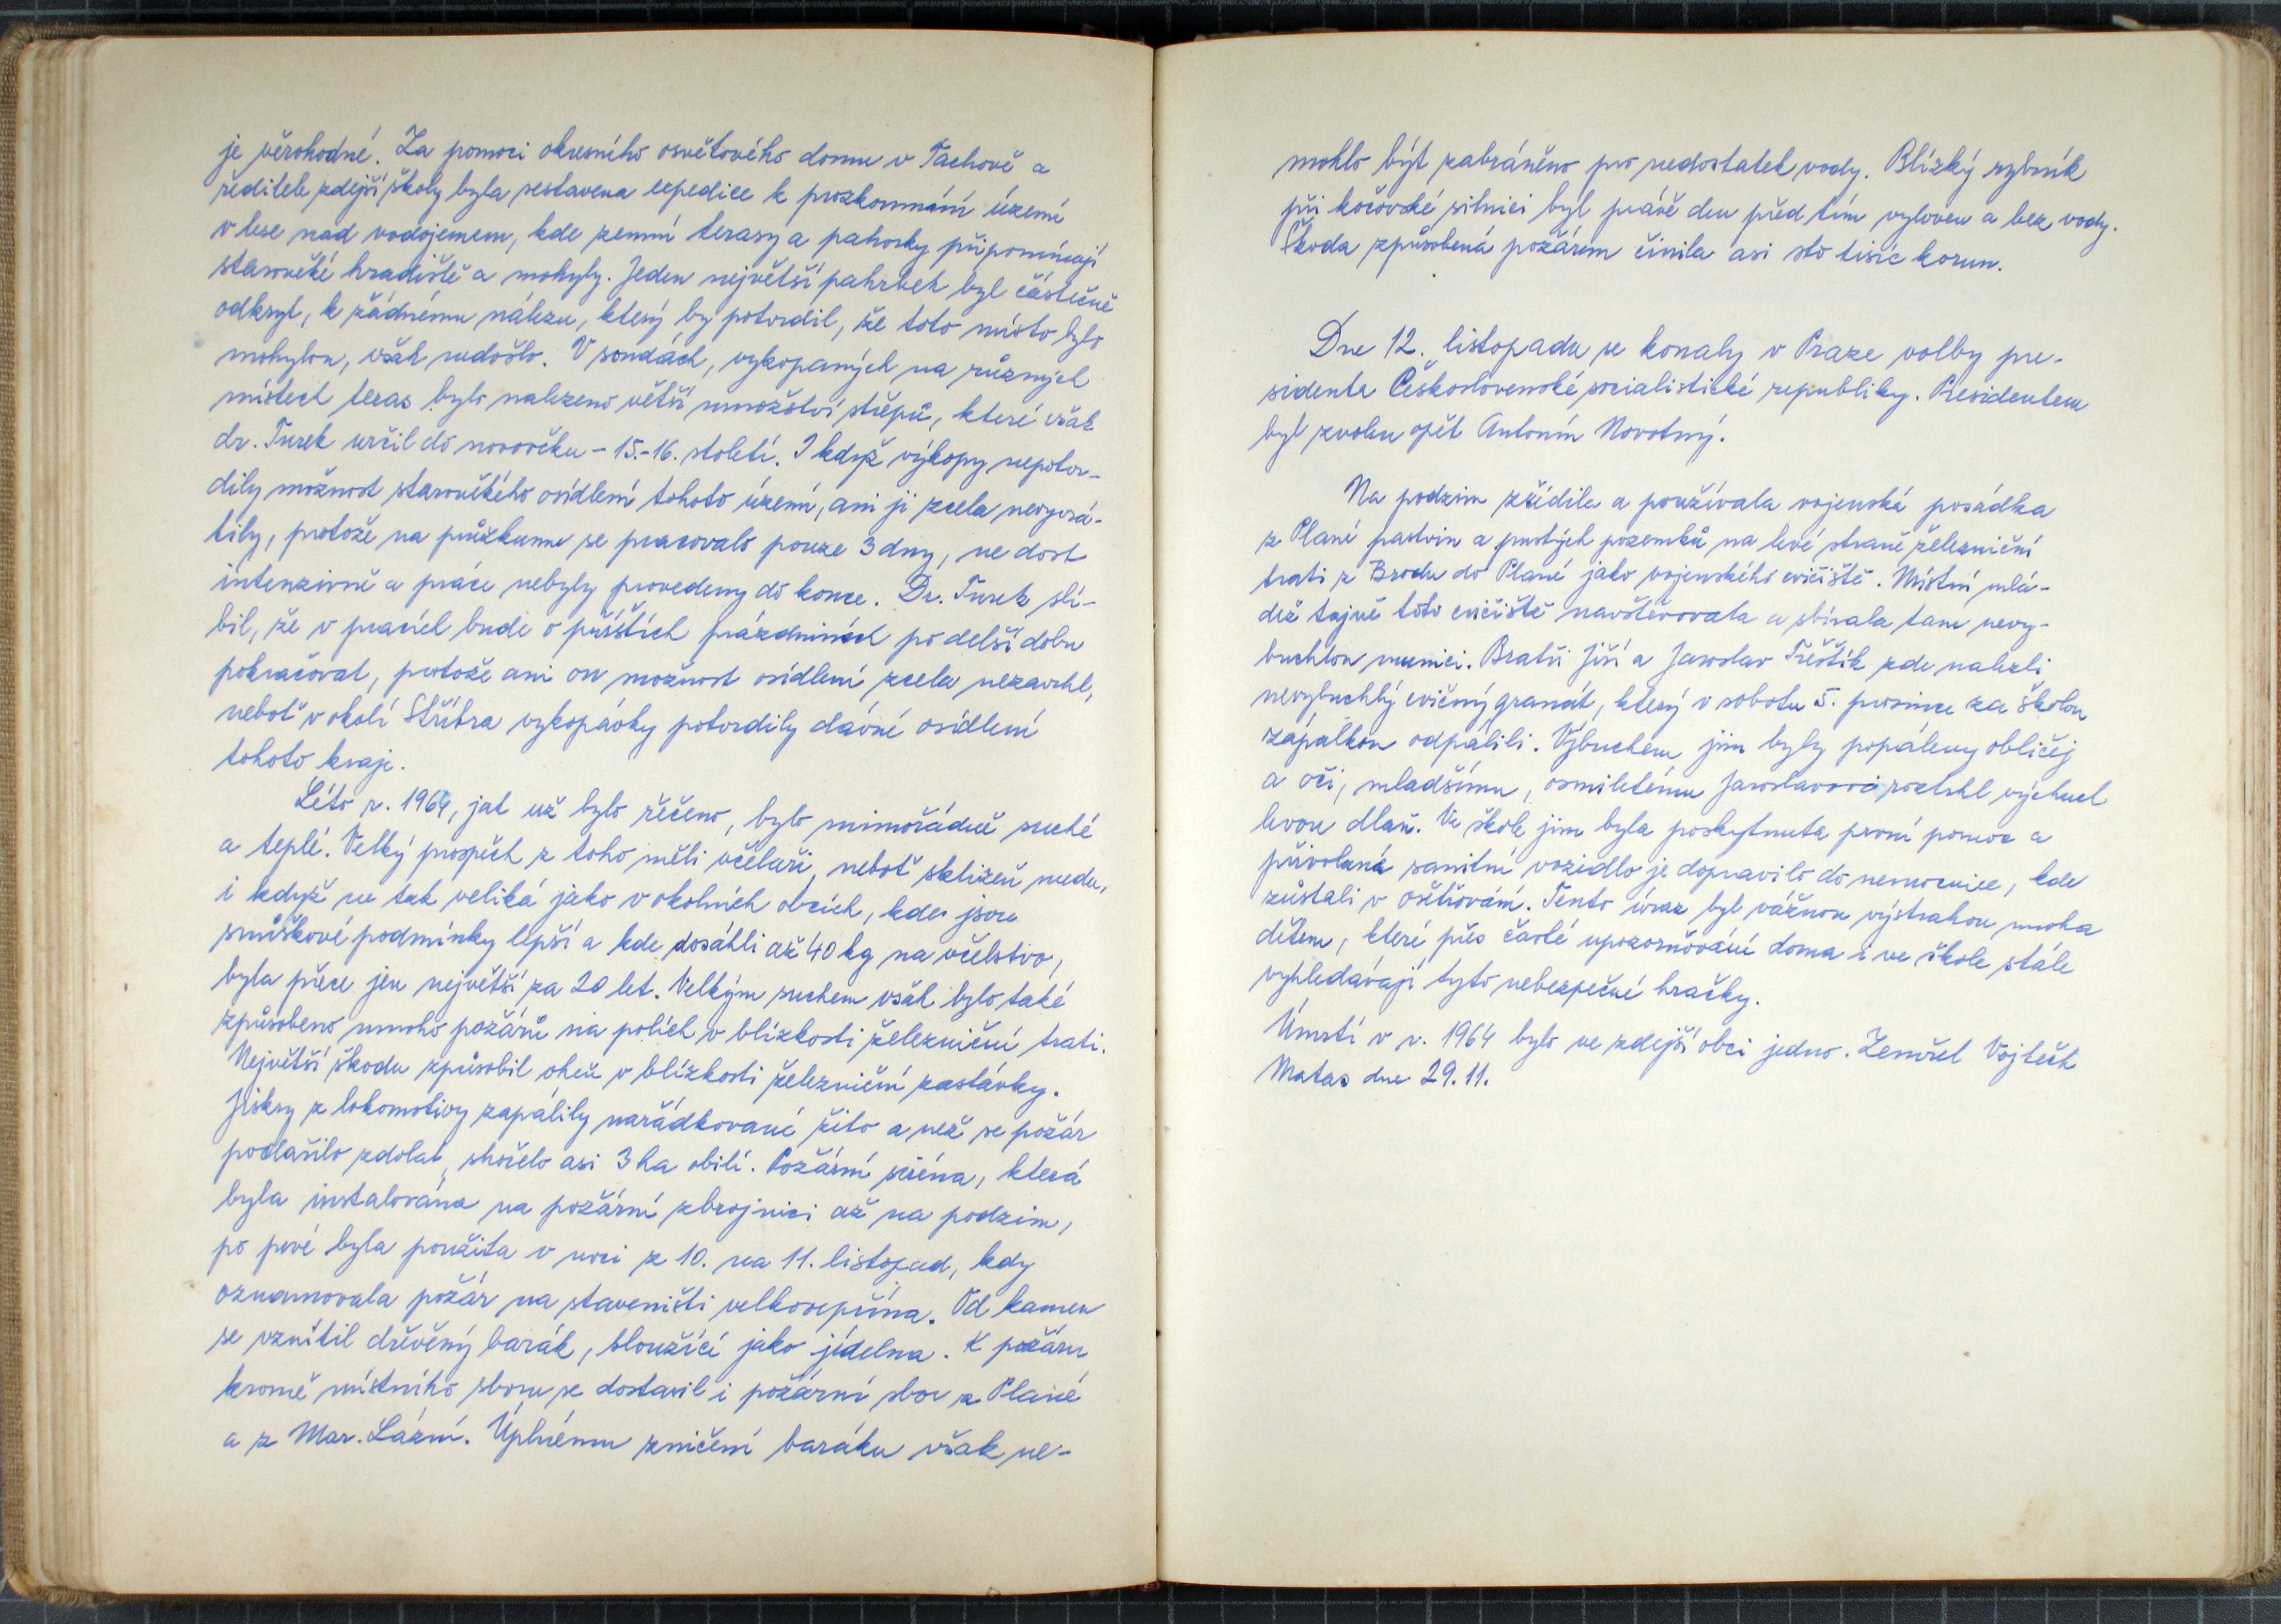 je věrohodné. Za pomoci okresního osvětového domu v Tachově a
ředitele zdejší školy byla sestavena expedice k prozkoumání území
v lese nad vodojemem, kde zemní terasy a pahorky připomínají
starověké hradiště a mohyly. Jeden největší pahrbek byl částečně
odkryt, k žádnému nálezu, který by potvrdil, že toto místo bylo
mohylou, však nedošlo. V sondách, vykopaných na různých
místech teras bylo nalezeno větší množství střepů, které však
dr. Turek určil do novověku - 15.-16. století. I když výkopy nepotvr-
dily možnost starověkého osídlení tohoto území, ani ji zcela nevyvrá-
tily, protože na průzkumu se pracovalo pouze 3 dny, ne dost
intenzivně a práce nebyly provedeny do konce. Dr. Turek slí-
bil, že v pracích bude o příštích prázdninách po delší dobu
pokračovat, protože ani on možnost osídlení zcela nezavrhl,
neboť v okolí Stříbra vykopávky potvrdily dávné osídlení
tohoto kraje.
Léto r. 1964, jak už bylo řečeno, bylo mimořádně suché
a teplé. Velký prospěch z toho měli včelaři, neboť sklizeň medu,
i když ne tak veliká jako v okolních obcích, kde jsou
snůškové podmínky lepší a kde dosáhli až 40 kg na včelstvo,
byla přece jen největší za 20 let. Velkým suchem však bylo také
způsobeno mnoho požárů na polích v blízkosti železniční trati.
Největší škodu způsobil oheň v blízkosti železniční zastávky.
Jiskry z lokomotivy zapálily nařádkované žito a než se požár
podařilo zdolat, shořelo asi 3 ha obilí. Požární siréna, která
byla instalována na požární zbrojnici až na podzim,
po prvé byla použita v noci z 10. na 11. listopad, kdy
oznamovala požár na staveništi velkovepřína. Od kamen
se vznítil dřevěný barák, sloužící jako jídelna. K požáru
kromě místního sboru se dostavil i požární sbor z Plané
a z Mar. Lázní. Úplnému zničení baráku však ne-
mohlo být zabráněno pro nedostatek vody. Blízký rybník
při kočovské silnici byl právě den před tím vyloven a bez vody.
Škoda způsobená požárem činila asi sto tisíc korun.
Dne 12. listopadu se konaly v Praze volby pre-
sidenta Československé socialistické republiky. Presidentem
byl zvolen opět Antonín Novotný.
Na podzim zřídila a používala vojenská posádka
z Plané pastvin a pustých pozemků na levé straně železniční
trati z Brodu do Plané jako vojenského cvičiště. Místní mlá-
dež tajně toto cvičiště navštěvovala a sbírala tam nevy-
buchlou munici. Bratři Jiří a Jaroslav Třeštík zde nalezli
nevybuchlý cvičný granát, který v sobotu 5. prosince za školou
zápalkou odpálili. Výbuchem jim byly popáleny obličej
a oči, mladšímu, osmiletému Jaroslavovi roztrhl výbuch
levou dlaň. Ve škole jim byla poskytnuta první pomoc a
přivolané sanitní vozidlo je dopravilo do nemocnice, kde
zůstali v ošetřování. Tento úraz byl vážnou výstrahou mnoha
dětem, které přes časté upozorňování doma i ve škole stále
vyhledávají tyto nebezpečné hračky.
Úmrtí v r. 1964 bylo ve zdejší obci jedno. Zemřel Vojtěch
Matas dne 29. 11.